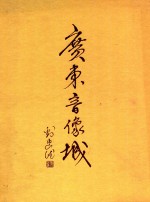 廣東音像城